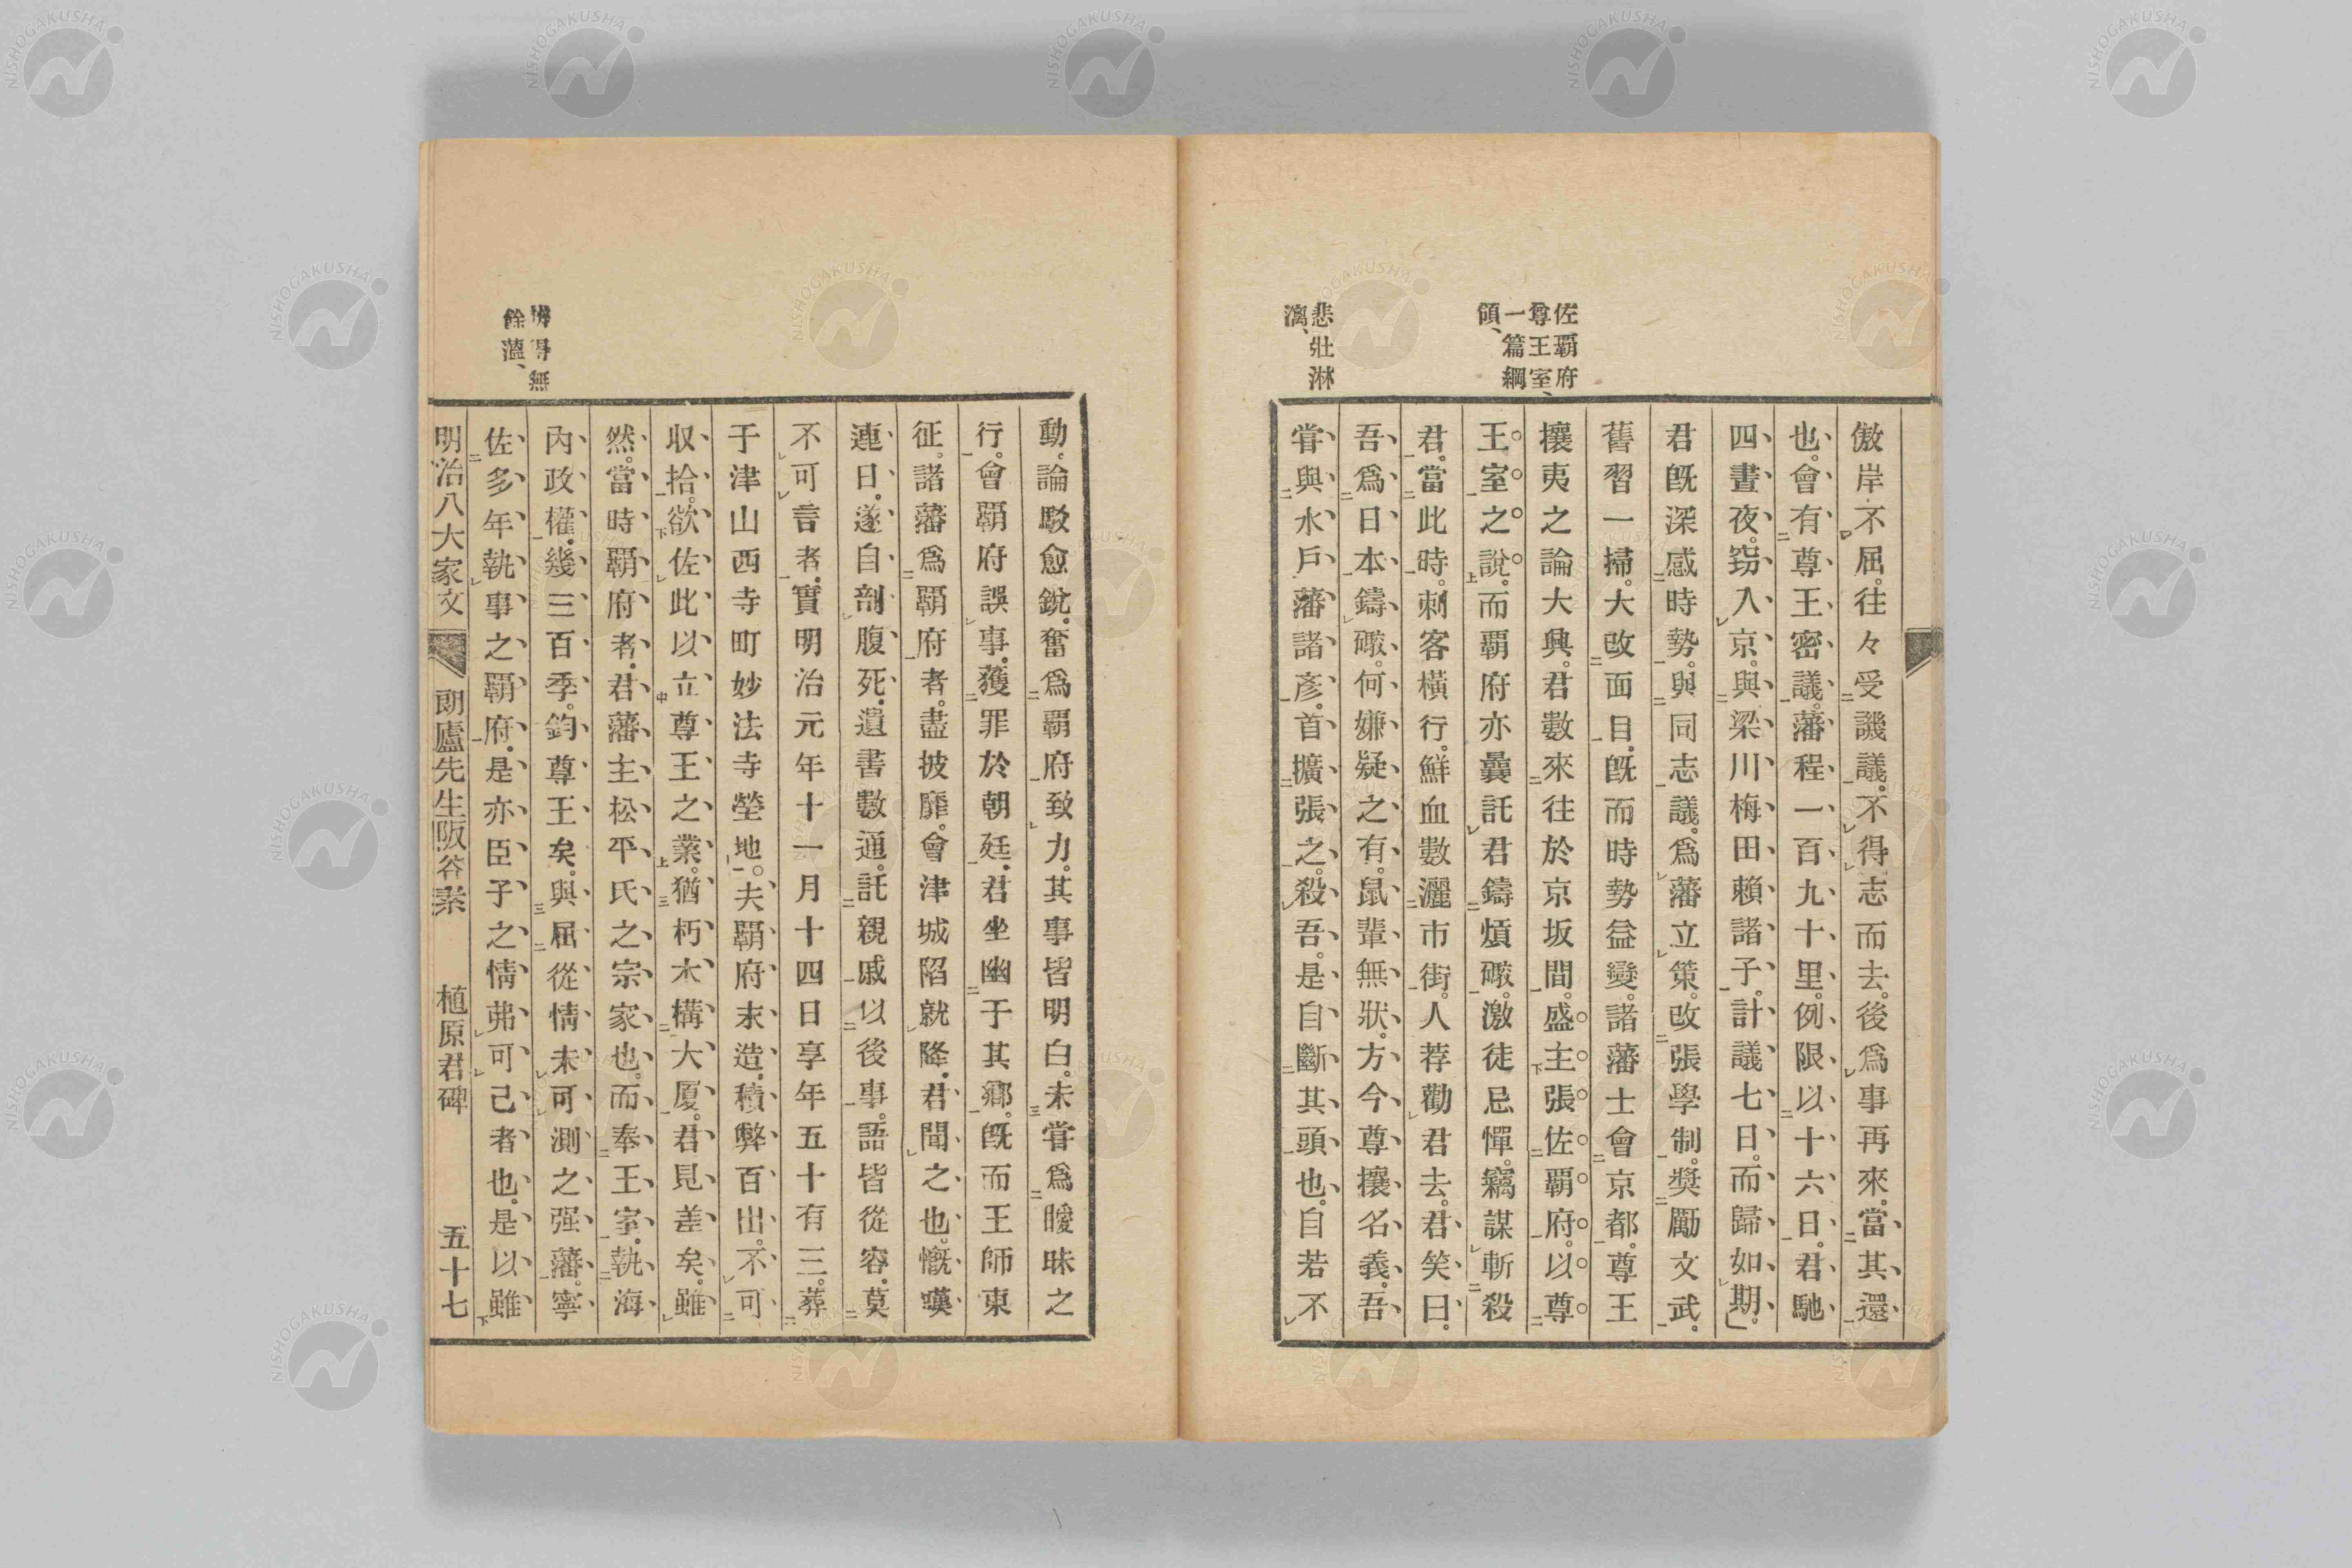 佐覇府
尊王室、
一篇綱
領、
悲壯淋
漓、
傲岸不屈。往々受譏議。不得志而去。後爲事再來。當其還
也。會有尊王密議。藩程一百九十里。例限以十六日。君馳
四晝夜。窃入京。與梁川梅田賴諸子。計議七日。而歸如期。」
君旣深感時勢。與同志議。爲藩立策。改張學制。奬勵文武。
舊習一掃。大改面目。旣而時勢益變。諸藩士會京都。尊王
攘夷之論大興。君數來往於京坂間。盛主張佐覇府。以尊
王室之說。而覇府亦曩託君鑄煩礮。激徒忌憚。竊謀斬殺
君。當此時。刺客橫行。鮮血數灑市街。人荐勸君去。君笑曰。
吾爲日本鑄礮。何嫌疑之有。鼠輩無狀。方今尊攘名義。吾
甞與水戶藩諸彥。首擴張之。殺吾。是自斷其頭也。自若不
餘薀、
動。論駁愈銳。奮爲覇府致力。其事皆明白。未甞爲曖昧之
行。會覇府誤事。獲罪於朝廷。君坐幽于其鄕。旣而王師東
征。諸藩爲覇府者。盡披靡。會津城陷就降。君聞之也。慨嘆
連日。遂自剖腹死。遺書數通。託親戚以後事。語皆從容。莫
不可言者。實明治元年十一月十四日享年五十有三。葬
于津山西寺町妙法寺塋地。夫覇府末造。積弊百出。不可
収拾。欲佐此以立尊王之業。猶朽木構大厦。君見差矣。雖
然。當時覇府者。君藩主松平氏之宗家也。而奉王室。執海
內政權。幾三百季。鈞尊王矣。與屈從情未可測之强藩。寧
佐多年執事之覇府。是亦臣子之情弗可已者也。是以雖
明治八大家文 朗廬先生阪谷素 植原君碑 五十七